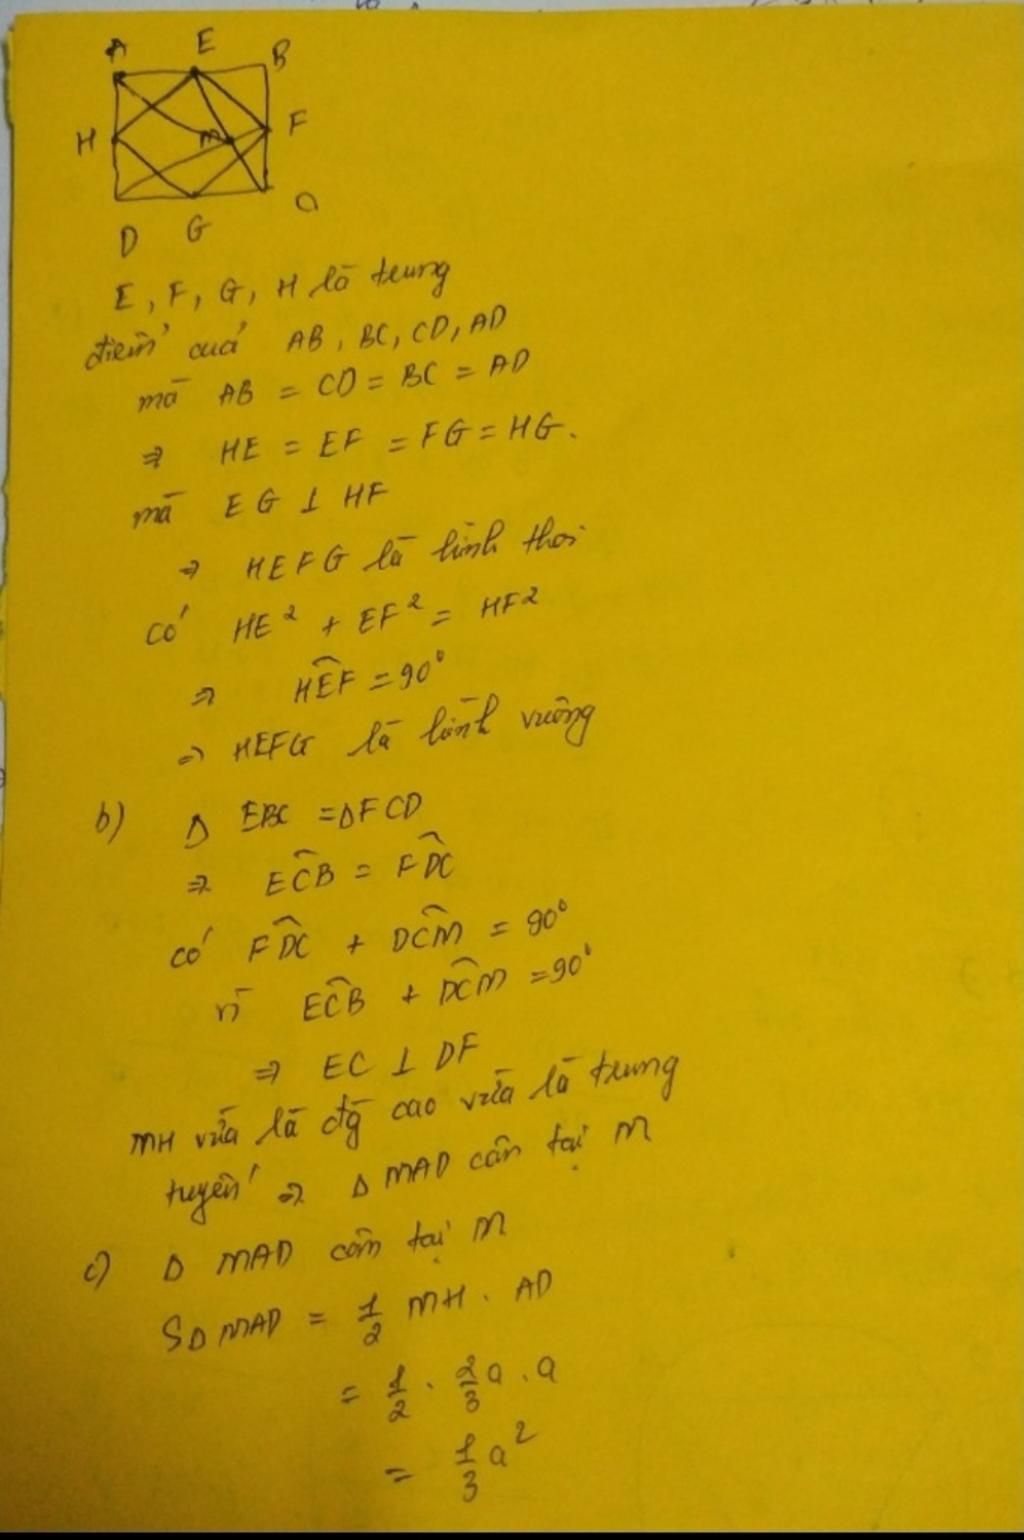 A E B
H M F
D G C
E, F, G, H là trung
điểm của AB, BC, CD, AD
mà AB = CD = BC = AD
⇒ HE = EF = FG = HG.
mà EG ⊥ HF
⇒ HEFG là hình thoi
có HE² + EF² = HF²
⇒ \widehat{HEF} = 90°
⇒ HEFG là hình vuông
b) Δ EBC = Δ FCD
⇒ E\widehat{C}B = F\widehat{D}C
có F\widehat{D}C + D\widehat{C}M = 90°
vì E\widehat{C}B + D\widehat{C}M = 90°
⇒ EC ⊥ DF
MH vừa là đg cao vừa là trung
tuyến ⇒ Δ MAD cân tại M
c) Δ MAD cân tại M
SΔMAD = 1/2 MH . AD
= 1/2 . 2/3 a . a
= 1/3 a²